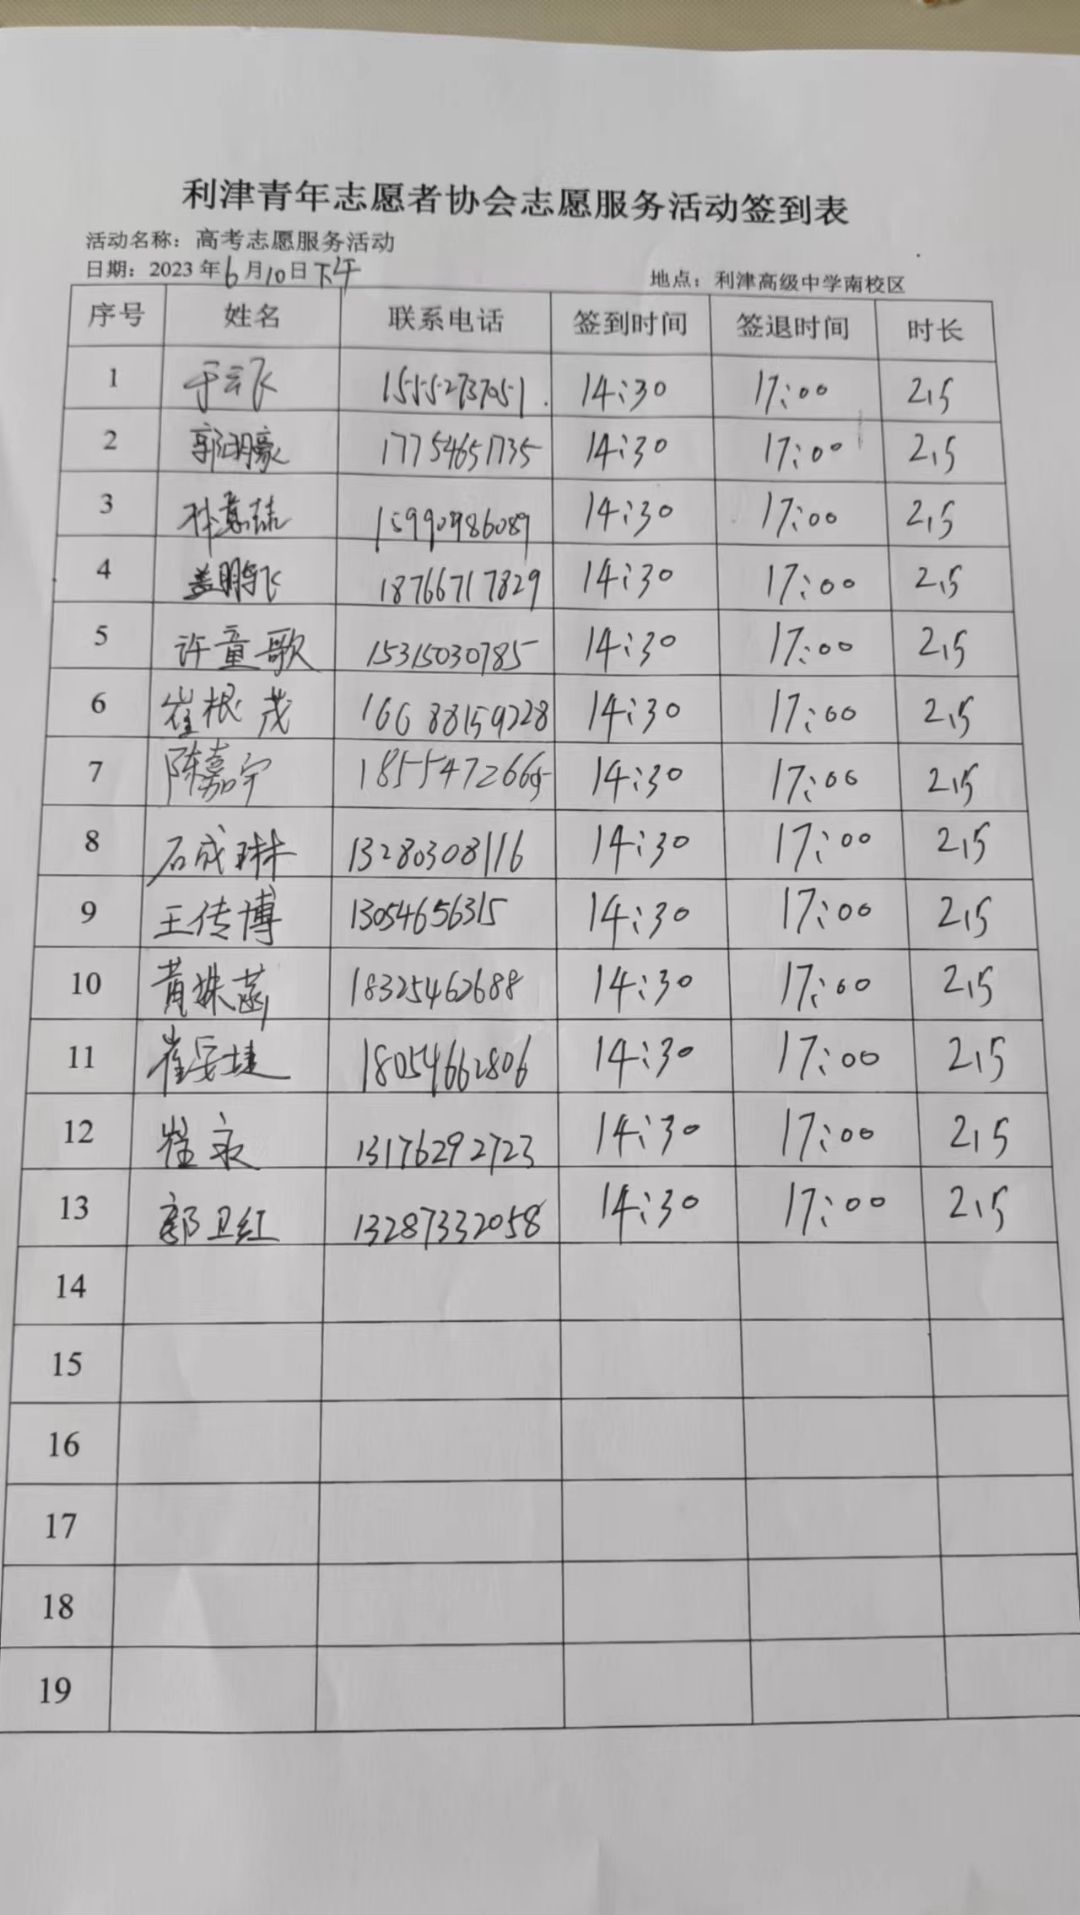 利津青年志愿者协会志愿服务活动签到表
活动名称：高考志愿服务活动
日期：2023年6月10日下午 地点：利津高级中学南校区
序号 姓名 联系电话 签到时间 签退时间 时长
1 于云飞 15552737051 14:30 17:00 2.5
2 郭鹏豪 17754651735 14:30 17:00 2.5
3 14:30 17:00 2.5
4 盖鹏飞 18766717829 14:30 17:00 2.5
5 许童歌 15315030785 14:30 17:00 2.5
6 崔根茂 16688159228 14:30 17:00 2.5
7 陈嘉宇 14:30 17:00 2.5
8 石成琳 13280308116 14:30 17:00 2.5
9 王传博 13054656315 14:30 17:00 2.5
10 黄姝菡 18325462688 14:30 17:00 2.5
11 崔安婕 18054662806 14:30 17:00 2.5
12 崔永 13176292723 14:30 17:00 2.5
13 郭卫红 13287332058 14:30 17:00 2.5
14
15
16
17
18
19